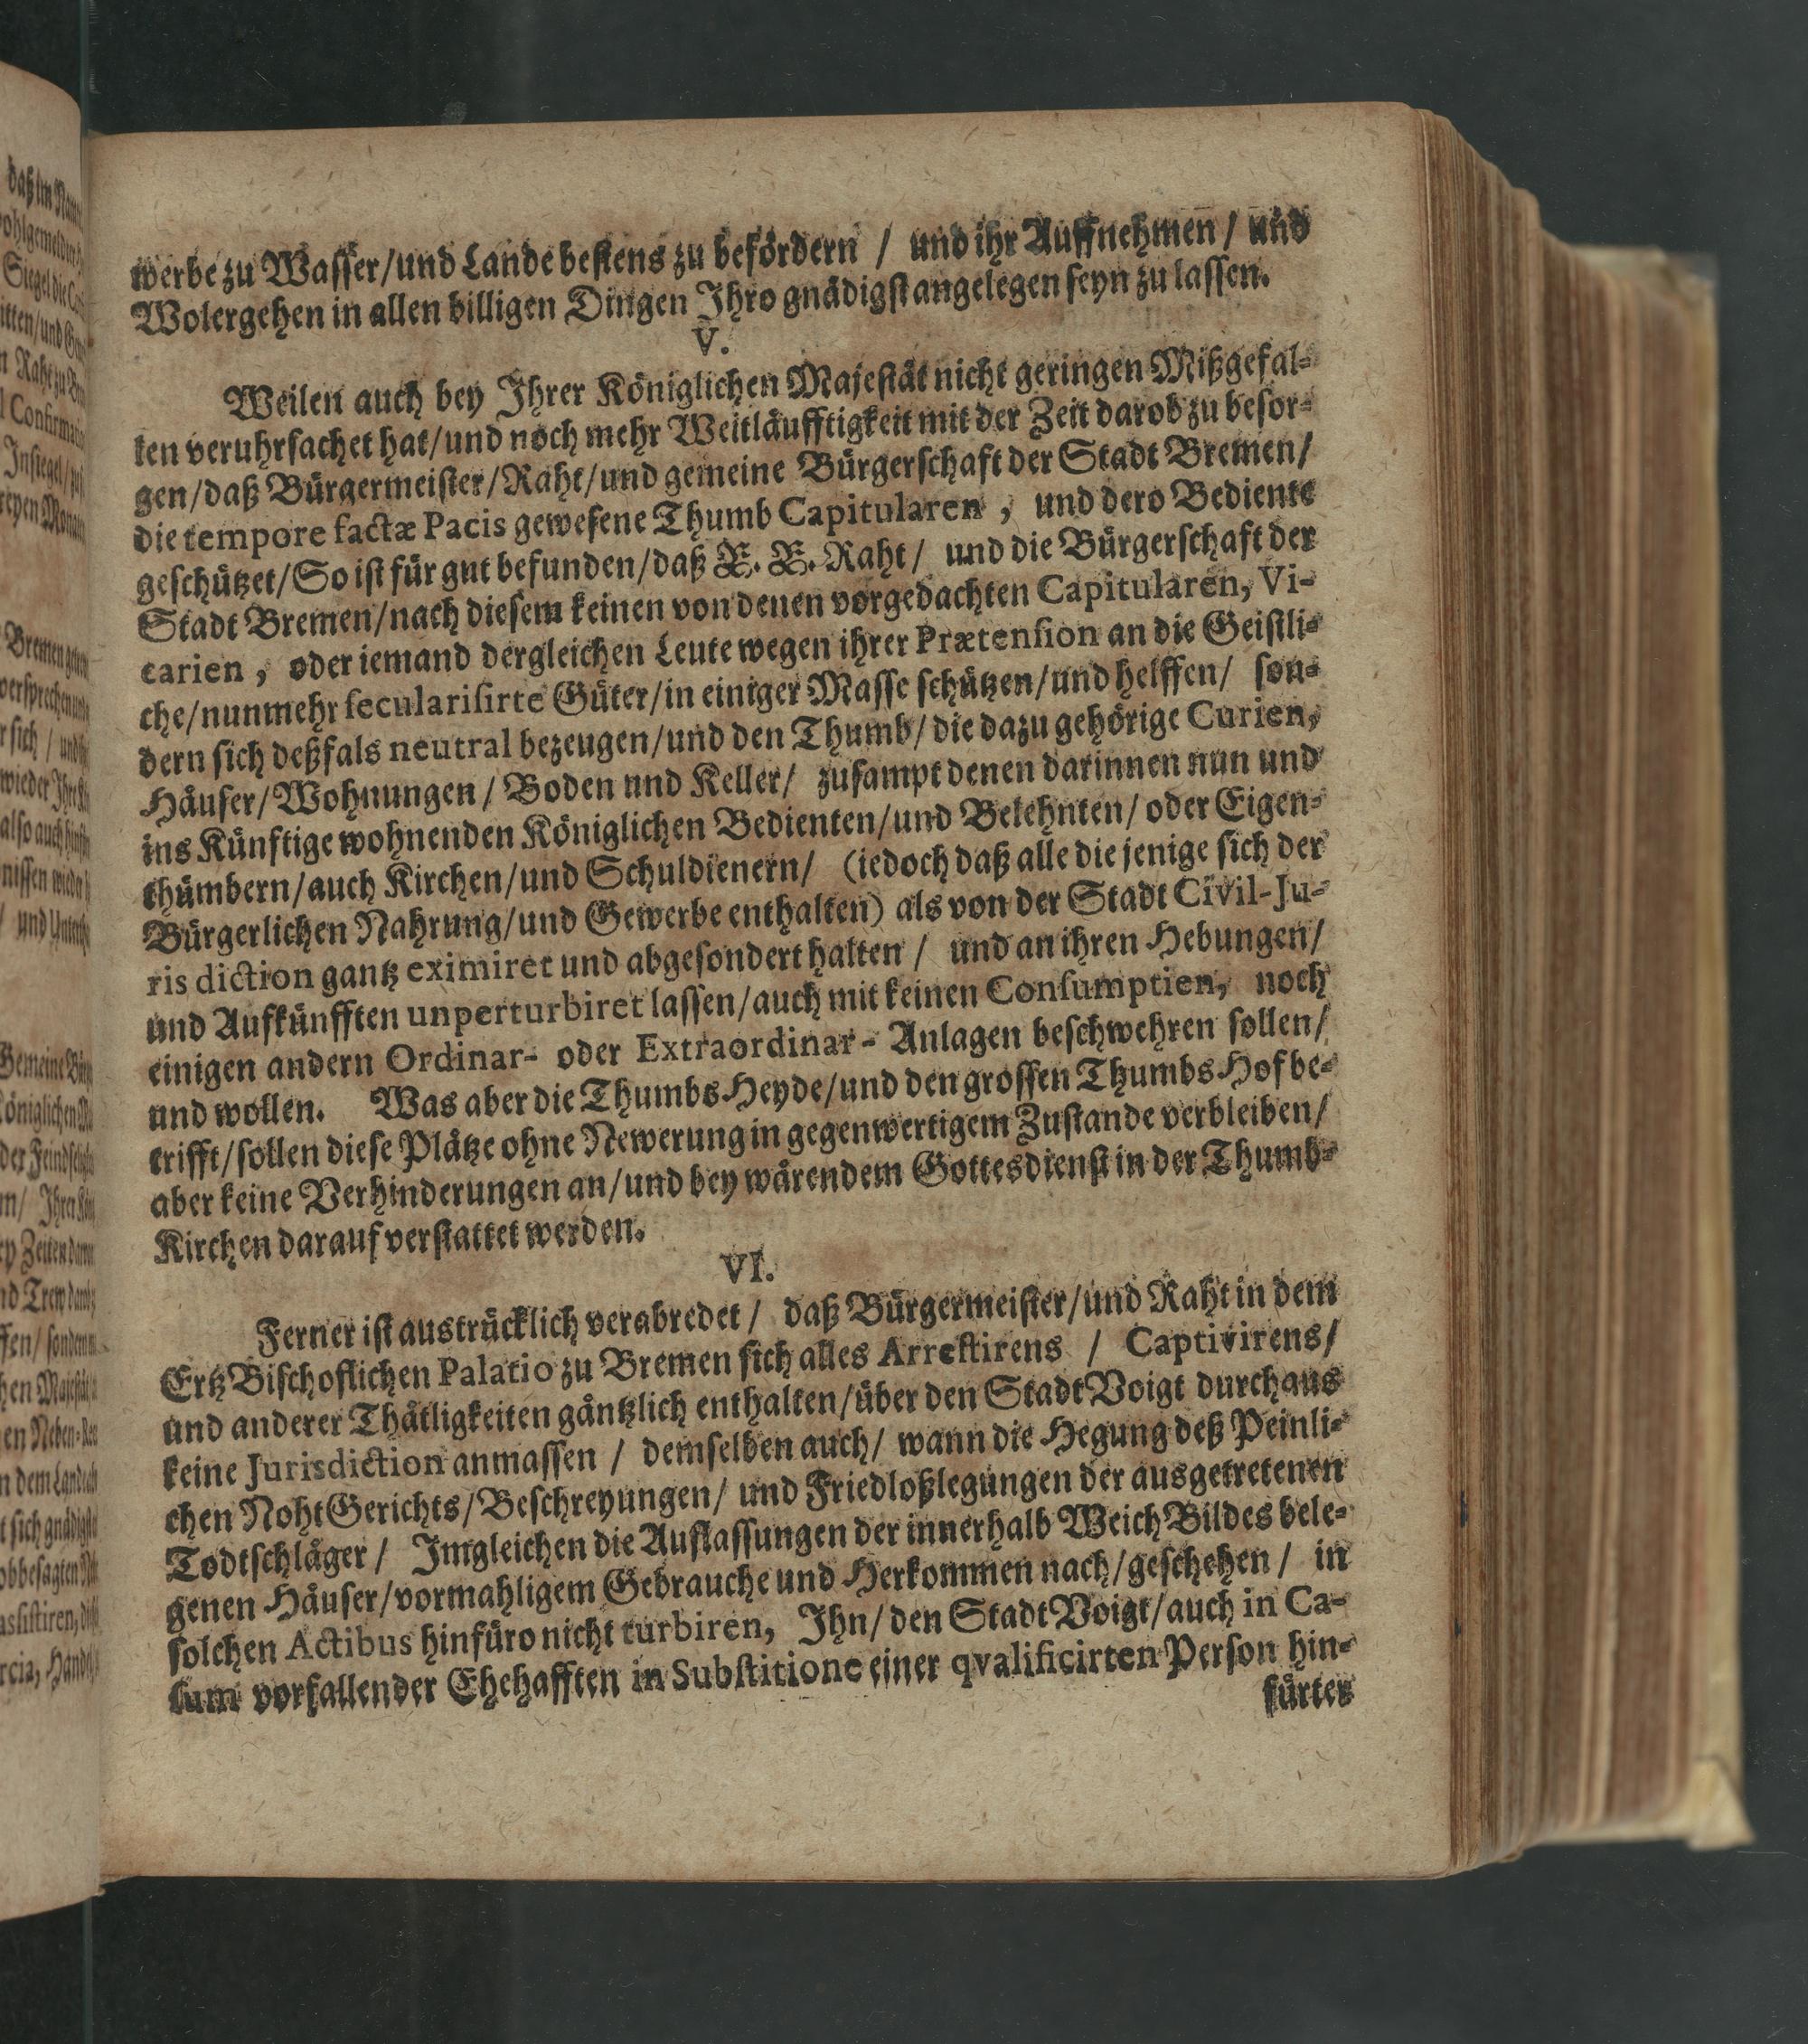 werbe zu Wasser/und Lande bestens zu befördern / und ihr Auffnehmen / und
Wolergehen in allen billigen Dingen Ihro gnädigst angelegen seyn zu lassen.
V.
Weilen auch bey Ihrer Königlichen Majestät nicht geringen Mißgefal-
len veruhrsachet hat/und noch mehr Weitläufftigkeit mit der Zeit darob zu besor-
gen/daß Bürgermeister/Raht/und gemeine Bürgerschaft der Stadt Bremen/
die tempore factæ Pacis gewesene Thumb Capitularen, und dero Bediente
geschützet/So ist für gut befunden/daß E. E. Raht/ und die Bürgerschaft der
Stadt Bremen/nach diesem keinen von denen vorgedachten Capitularen, Vi-
carien, oder iemand dergleichen Leute wegen ihrer Prætension an die Geistli-
che/nunmehr secularisirte Güter/in einiger Masse schützen/und helffen/ son-
dern sich deßfals neutral bezeugen/und den Thumb/ die dazu gehörige Curien,
Häuser/Wohnungen/ Boden und Keller/ zusampt denen darinnen nun und
ins Künftige wohnenden Königlichen Bedienten/und Belehnten/ oder Eigen-
thümbern/auch Kirchen/und Schuldienern/ (iedoch daß alle die jenige sich der
Bürgerlichen Nahrung/und Gewerbe enthalten) als von der Stadt Civil-Ju-
ris diction gantz eximiret und abgesondert halten / und an ihren Hebungen/
und Aufkünfften unperturbiret lassen/auch mit keinen Consumptien, noch
einigen andern Ordinar- oder Extraordinar- Anlagen beschwehren sollen/
und wollen. Was aber die Thumbs Heyde/und den grossen Thumbs Hof be-
trifft/sollen diese Plätze ohne Newerung in gegenwertigem Zustande verbleiben/
aber keine Verhinderungen an/und bey wärendem Gottesdienst in der Thumb-
Kirchen darauf verstattet werden.
VI.
Ferner ist austrücklich verabredet / daß Bürgermeister/und Raht in dem
Ertz Bischoflichen Palatio zu Bremen sich alles Arrestirens / Captivirens/
und anderer Thätligkeiten gäntzlich enthalten/über den Stadt Voigt durchaus
keine Jurisdiction anmassen / demselben auch/ wann die Hegung deß Peinli-
chen Noht Gerichts/Beschreyungen/ und Friedloßlegungen der ausgetretenen
Todtschläger / Imgleichen die Auflassungen der innerhalb Weich Bildes bele-
genen Häuser/vormahligem Gebrauche und Herkommen nach/geschehen / in
solchen Actibus hinfüro nicht turbiren, Ihn/ den Stadt Voigt/auch in Ca-
sum vorfallender Ehehafften in Substitione einer qvalificirten Person hin-
fürter